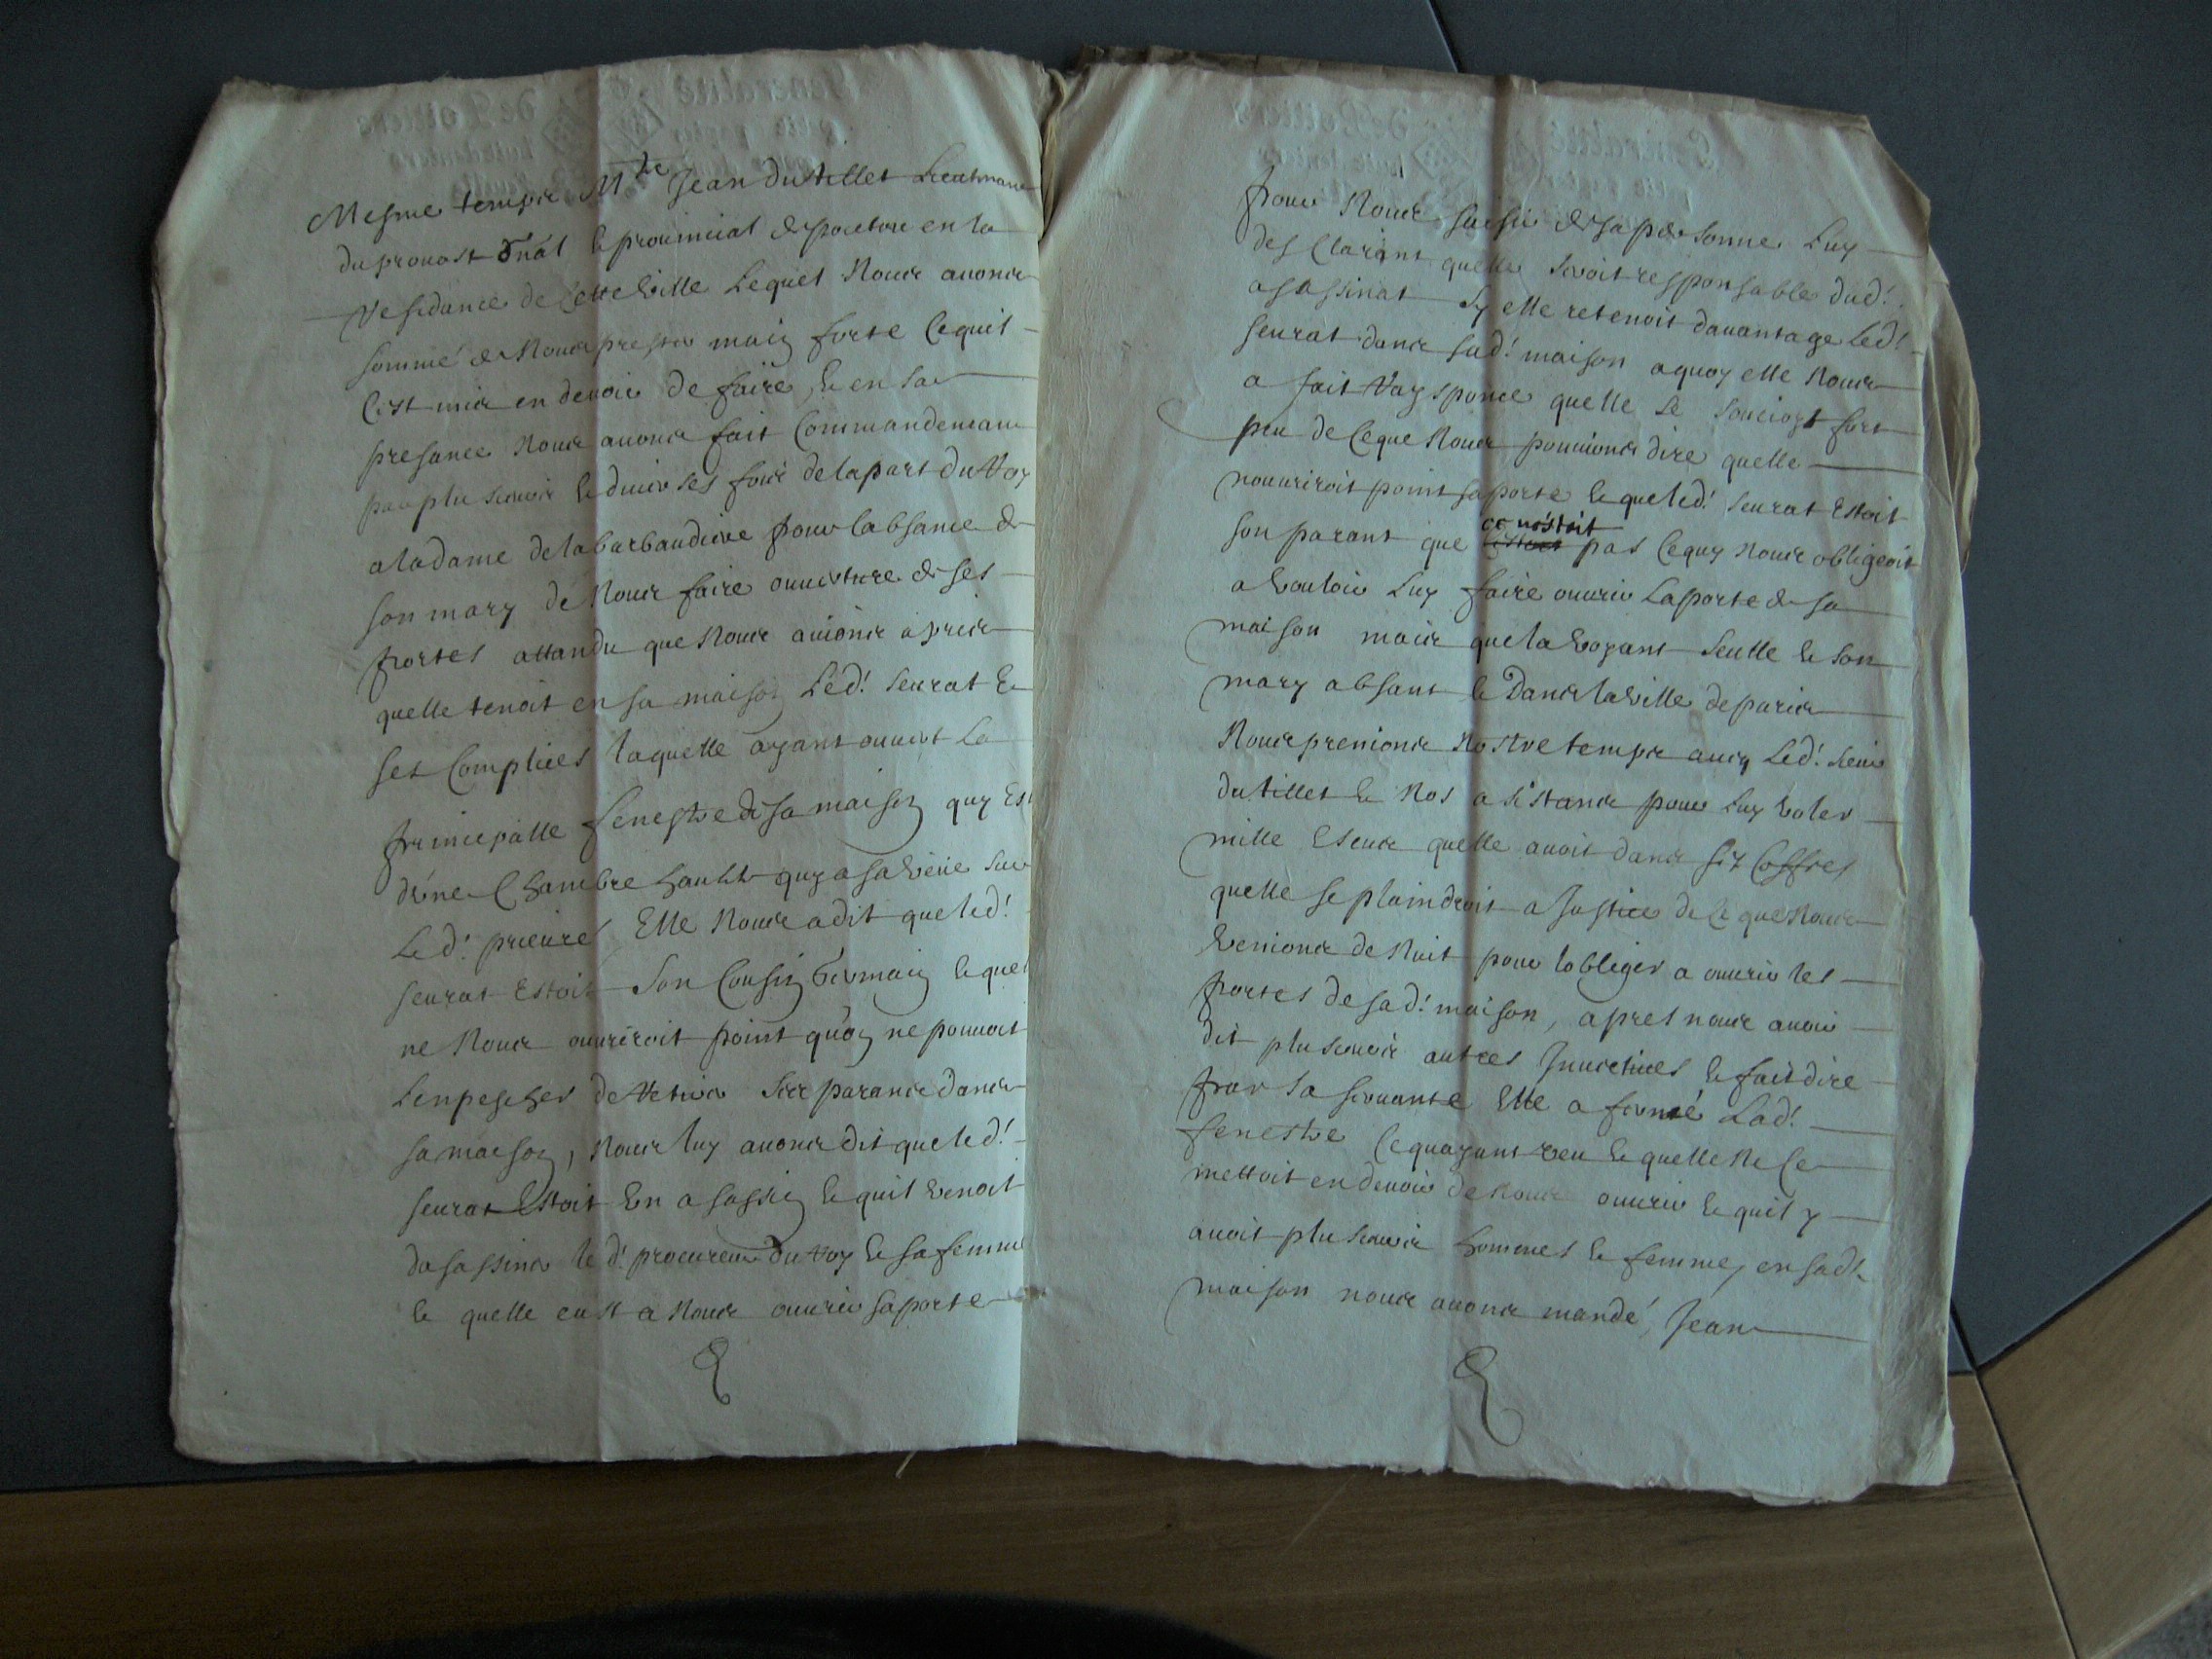 Mesme temps Mtre Jean dutillet Lieutenant
du prouost gnál & prouincial de poictou en la
residance de cette ville Lequel Nous auons
sommé de Nous prester main forte ce quil
cest mis en deuoir de faire, & en sa
presance Nous auons fait Commandemant
par plusieurs & diuerses fois de la part du Roy
a la dame de la barbaudiere pour labsance de
son mary de Nous faire ouuerture de ses
portes attandu que Nous auions apris
quelle tenoit en sa maison led! seurat &
ses Complices laquelle ayant ouuert la
principalle fenestre de sa maison quy est
dune Chambre haulte quy a sa veüe sur
Led! prieuré Elle Nous a dit que led!
seurat Estoit son Cousin Germain & quel
ne Nous ouuriroit point quon ne pouuoit
Lenpescher de retirer ses parans dans
sa maison, Nous luy auons dit que led!
seurat Estoit Un asassin & quil venoit
dasassiner led! procureur du roy & sa femme
& quelle eust a Nous ouurir sa porte
pour Nous saisir de sa personne Luy
desclarant quelle seroit responsable dud!
asassinat sy elle retenoit dauantage Led!
seurat dans sad! maison a quoy elle Nous
a fait raysponce quelle se soucioyt fort
peu de ce que Nous pouuions dire quelle
nouuriroit point sa porte & que led! seurat Estoit
son parant que ce nestoit pas ce quy Nous obligeoit
a vouloir Luy faire ouurir La porte de sa
maison mais que la voyant seulle & son
mary absant & Dans la ville de paris
Nous prenions Nostre temps auec Led! sieur
dutillet & Nos asistans pour Luy voler
mille Escus quelle auoit dans ses Coffres
quelle se plaindroit a Justice de ce que Nous
venions de Nuit pour lobliger a ouurir les
portes de sad! maison, apres nous auoir
dit plusieurs autres Inuectiues & fait dire
par sa seruante Elle a fermé Lad!
fenestre ce quayant veu & quelle Ne se
mettoit en deuoir de Nous ouurir & quil y
auoit plusieurs hommes & femmes en sad!
maison nous auons mandé, Jean